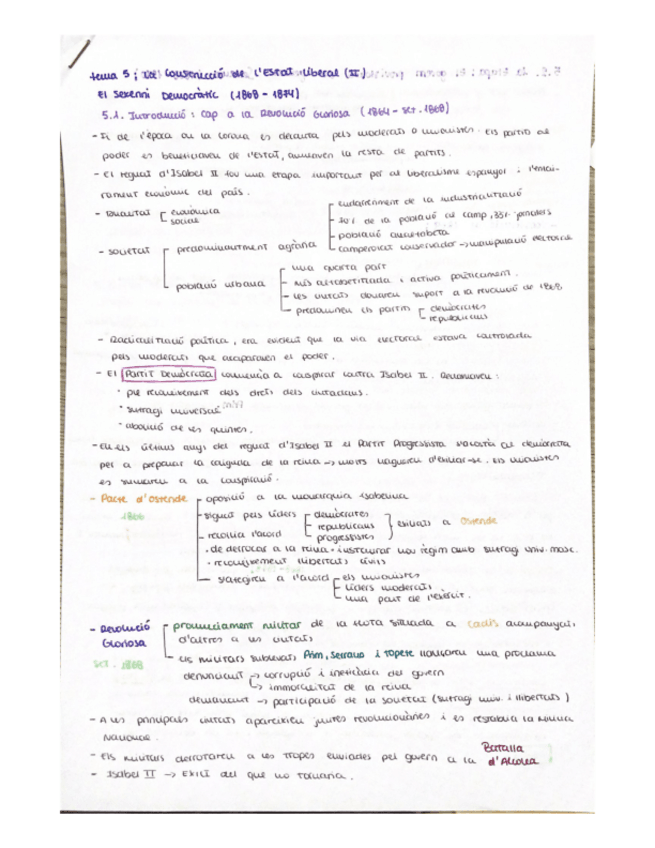 tema 5: La Construcció de l'Estat Liberal (II)
El Sexenni Democràtic (1868 - 1874)
5.1. Introducció: cap a la Revolució Gloriosa (1864 - set. 1868)
- Fi de l'època on la corona es decanta pels moderats o unionistes. Els partits al
poder es beneficiaven de l'estat, anul·laven la resta de partits.
- El regnat d'Isabel II fou una etapa important per al liberalisme espanyol i
rament econòmic del país.
- Dualitat
econòmica
social
- societat
predominantment agrària
endarreriment de la industrialització
70% de la població al camp, 35% jornalers
població analfabeta
camperolat conservador → manipulació electoral
població urbana
una quarta part
més alfabetitzada i activa políticament.
les ciutats donaven suport a la revolució de 1868
predominen els partits
demòcrates
republicans
- Radicalització política, era evident que la via electoral estava controlada
pels moderats que acaparaven el poder.
- El Partit Demòcrata comença a conspirar contra Isabel II. Reclamaven:
· ple reconeixement dels drets dels ciutadans.
· sufragi universal
· abolició de les quintes.
- En els últims anys del regnat d'Isabel II el Partit Progressista s'acosta al demòcrata
per a preparar la caiguda de la reina → molts hagueren d'exiliar-se. Els unionistes
es sumaren a la conspiració.
- Pacte d'Ostende
1866
oposició a la monarquia isabelina
signat pels líders
demòcrates
republicans
progressistes
exiliats a Ostende
recollia l'acord
· de derrocar a la reina · instaurar nou règim amb sufragi univ. masc.
· reconeixement llibertats civils
s'afegiren a l'acord
els unionistes
líders moderats
una part de l'exèrcit.
- Revolució
Gloriosa
set. 1868
pronunciament militar de la flota situada a Cadis acompanyats
d'altres a les ciutats
els militars sublevats Prim, Serrano i Topete llançaren una proclama
denunciant → corrupció i ineficàcia del govern
↳ immoralitat de la reina
demanant → participació de la societat (sufragi univ. i llibertats)
- A les principals ciutats apareixien juntes revolucionàries i es restablia la Milícia
Nacional.
- Els militars derrotaren a les tropes enviades pel govern a la Batalla
d'Alcolea
- Isabel II → Exili del que no tornaria.